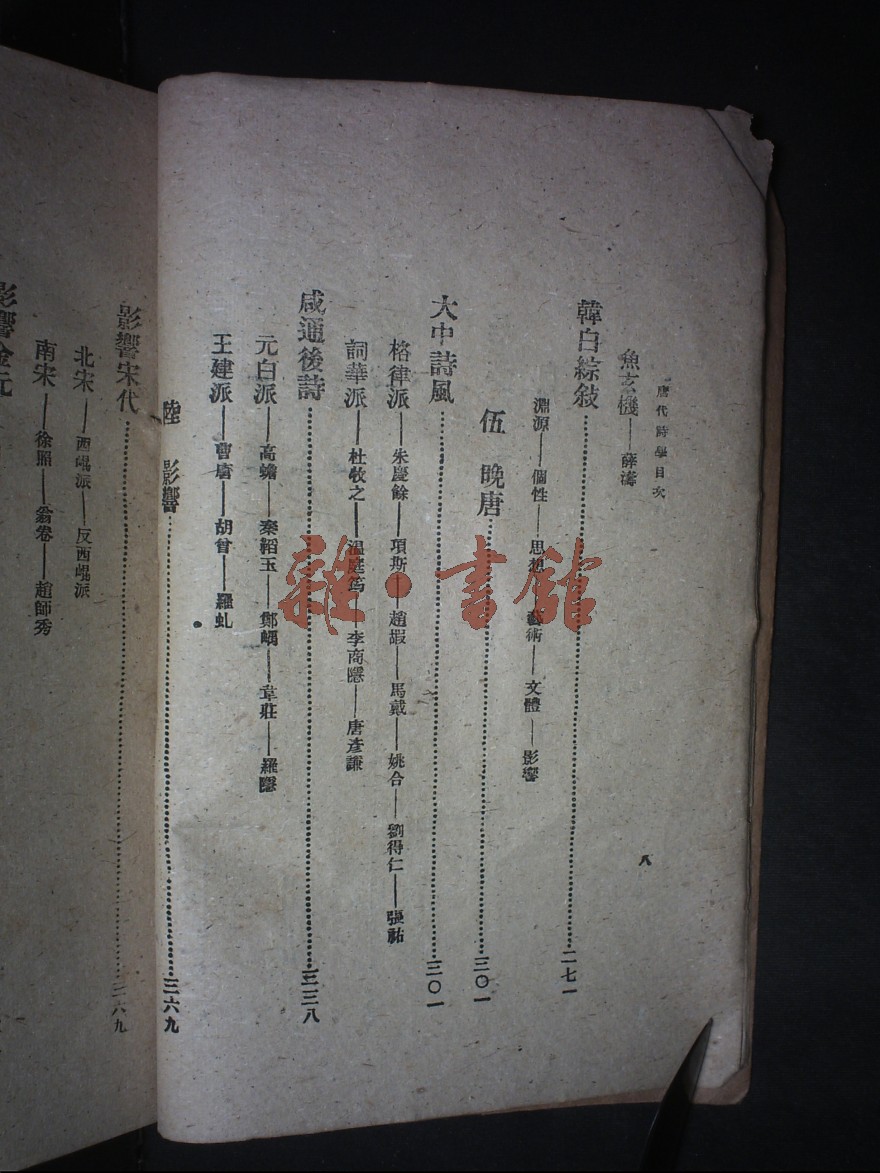 唐代詩學目次
魚玄機——薛濤
韓白綜敍……二七一
淵源——個性——思想——藝術——文體——影響
伍 晚唐……三〇一
大中詩風……三〇一
格律派——朱慶餘——項斯——趙嘏——馬戴——姚合——劉得仁——張祜
詞華派——杜牧之——温庭筠——李商隱——唐彥謙
咸通後詩……三三八
元白派——高蟾——秦韜玉——鄭嵎——韋莊——羅隱
王建派——曹唐——胡曾——羅虬
陸 影響……三六九
八
影響宋代……三六九
北宋——西崐派——反西崐派
南宋——徐照——翁卷——趙師秀
影響金元
雜·書館